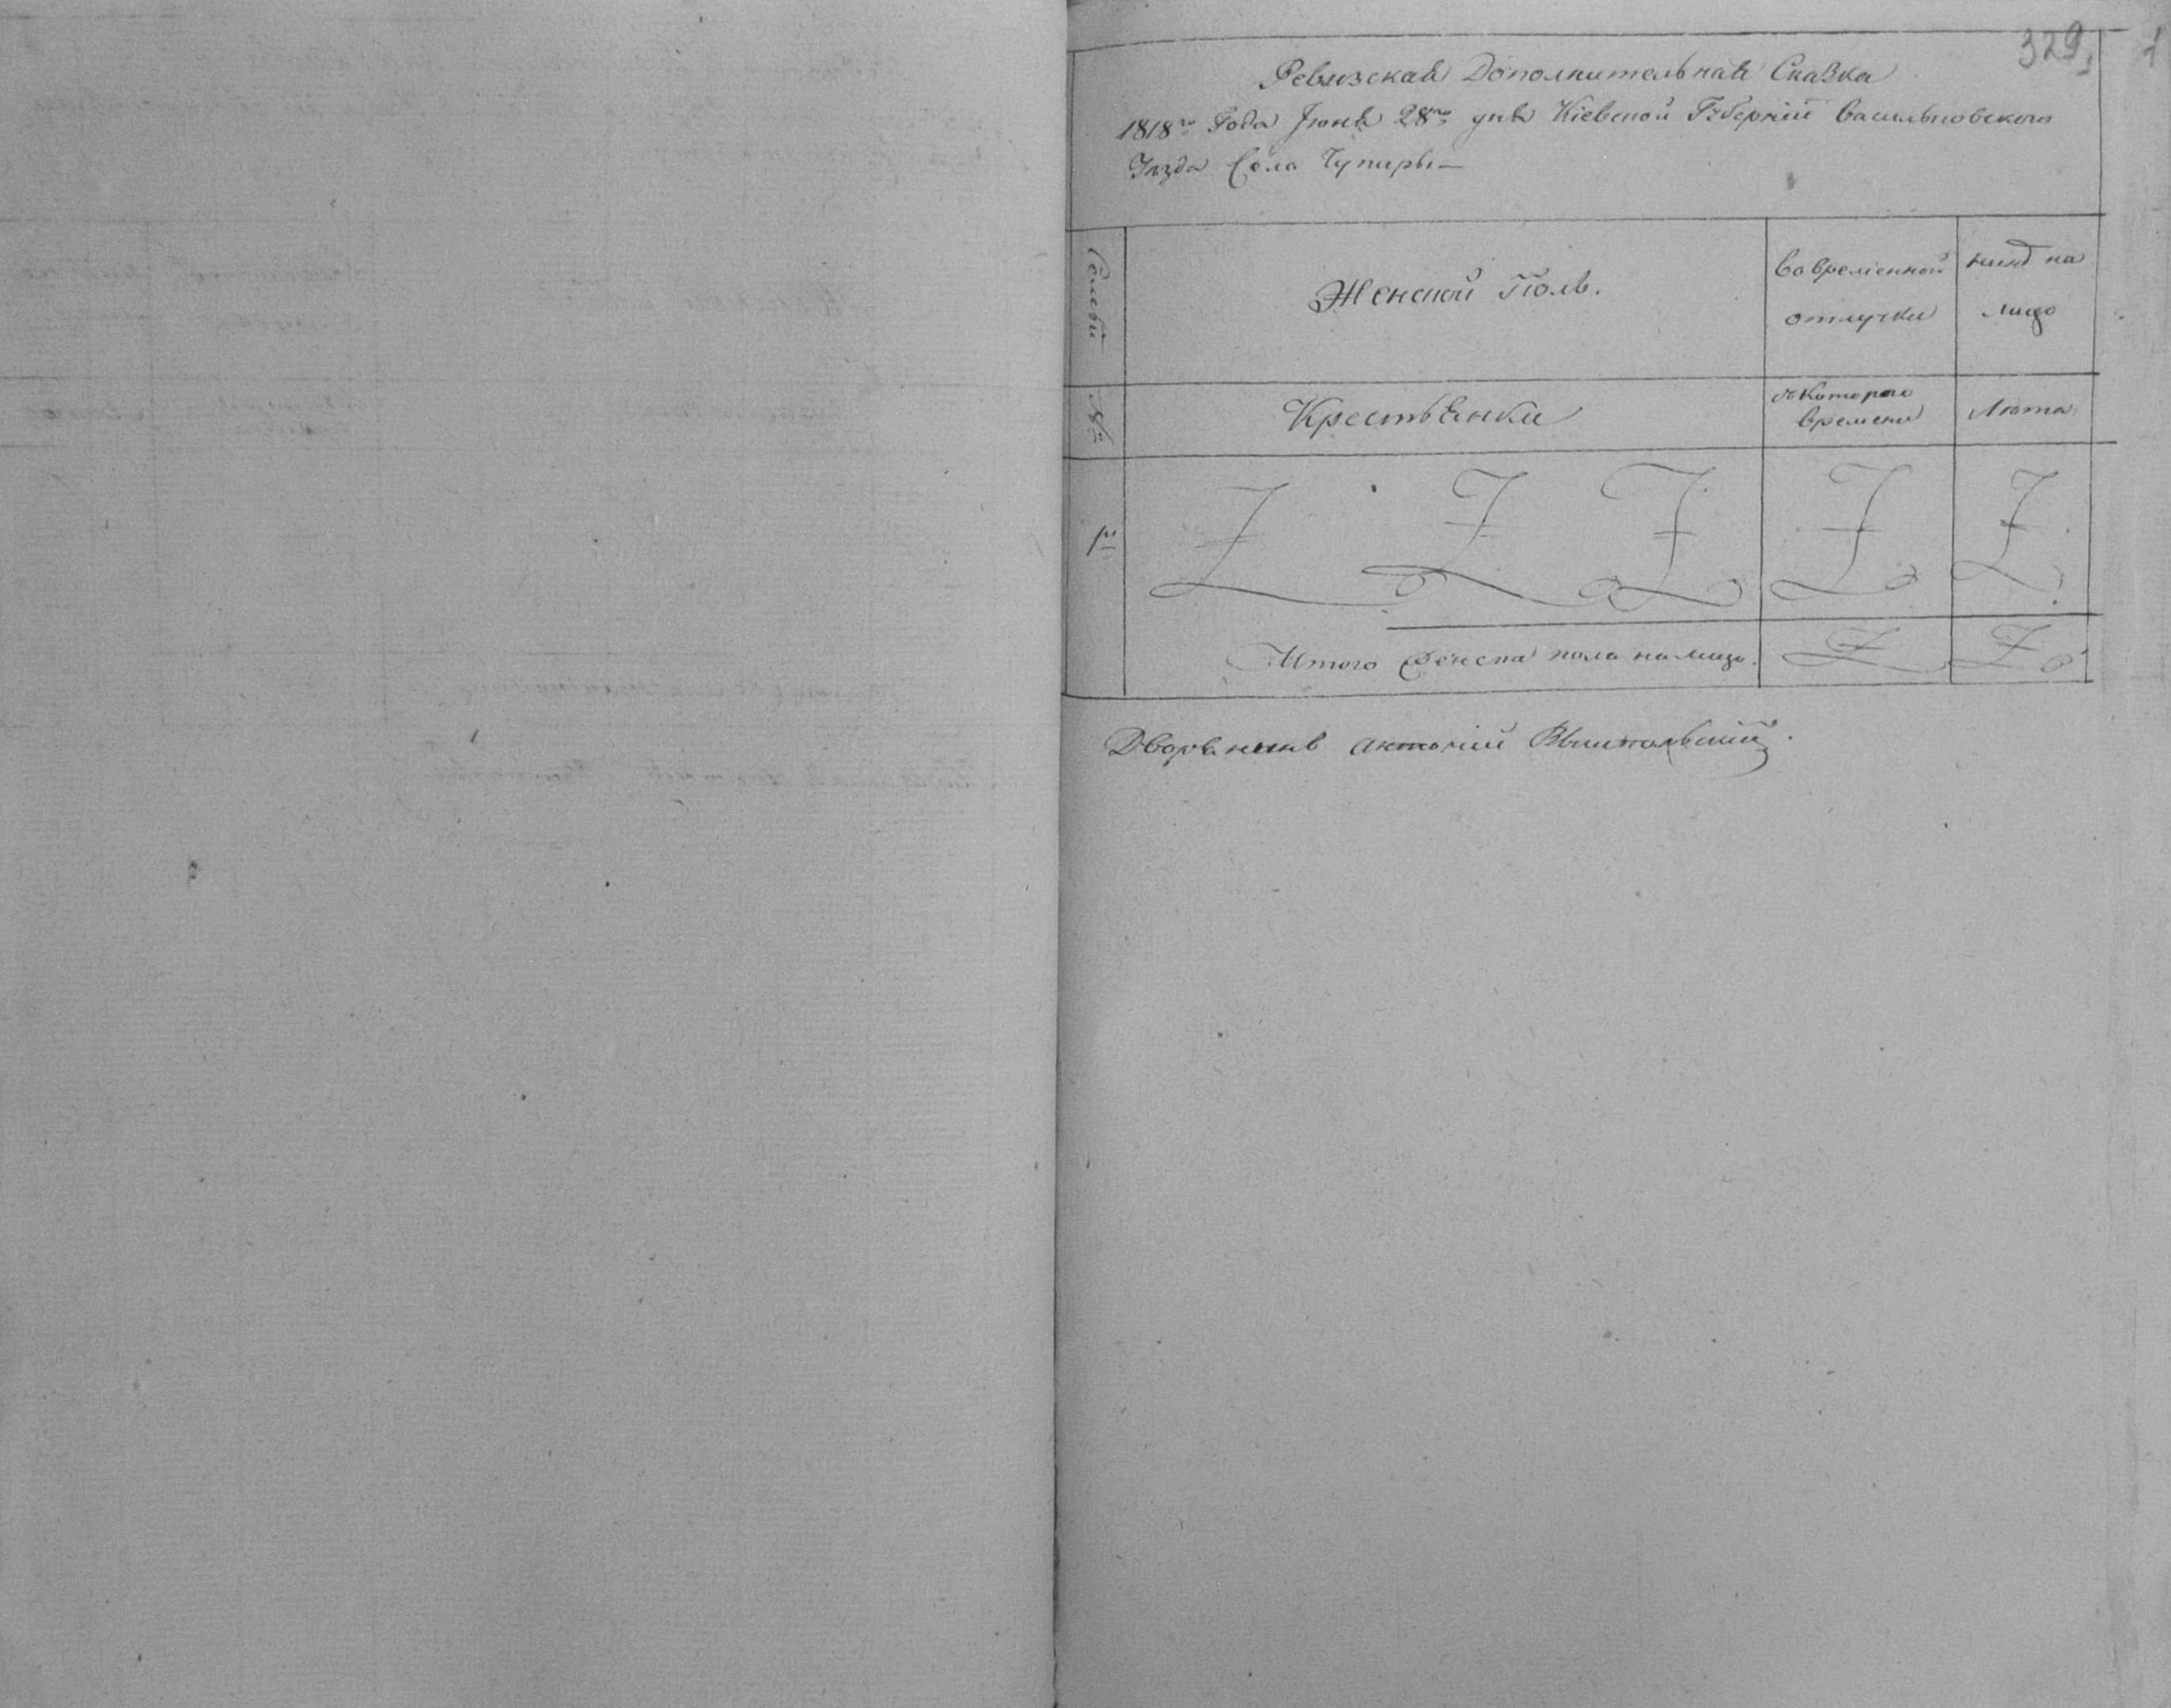 329
Ревизская Дополнительная Сказка
1818го Года Июня 28го дня Кіевской Губернїи Васильковского
Уезда Села Чупиры
Семьи
Женской Полъ.
Вовременной
отлучки
нынѣ на
лицо
№
Крестьянки
съ Которого
времени
Лѣта
1
Итого Женска пола налицо.
Дворянинъ Антоній